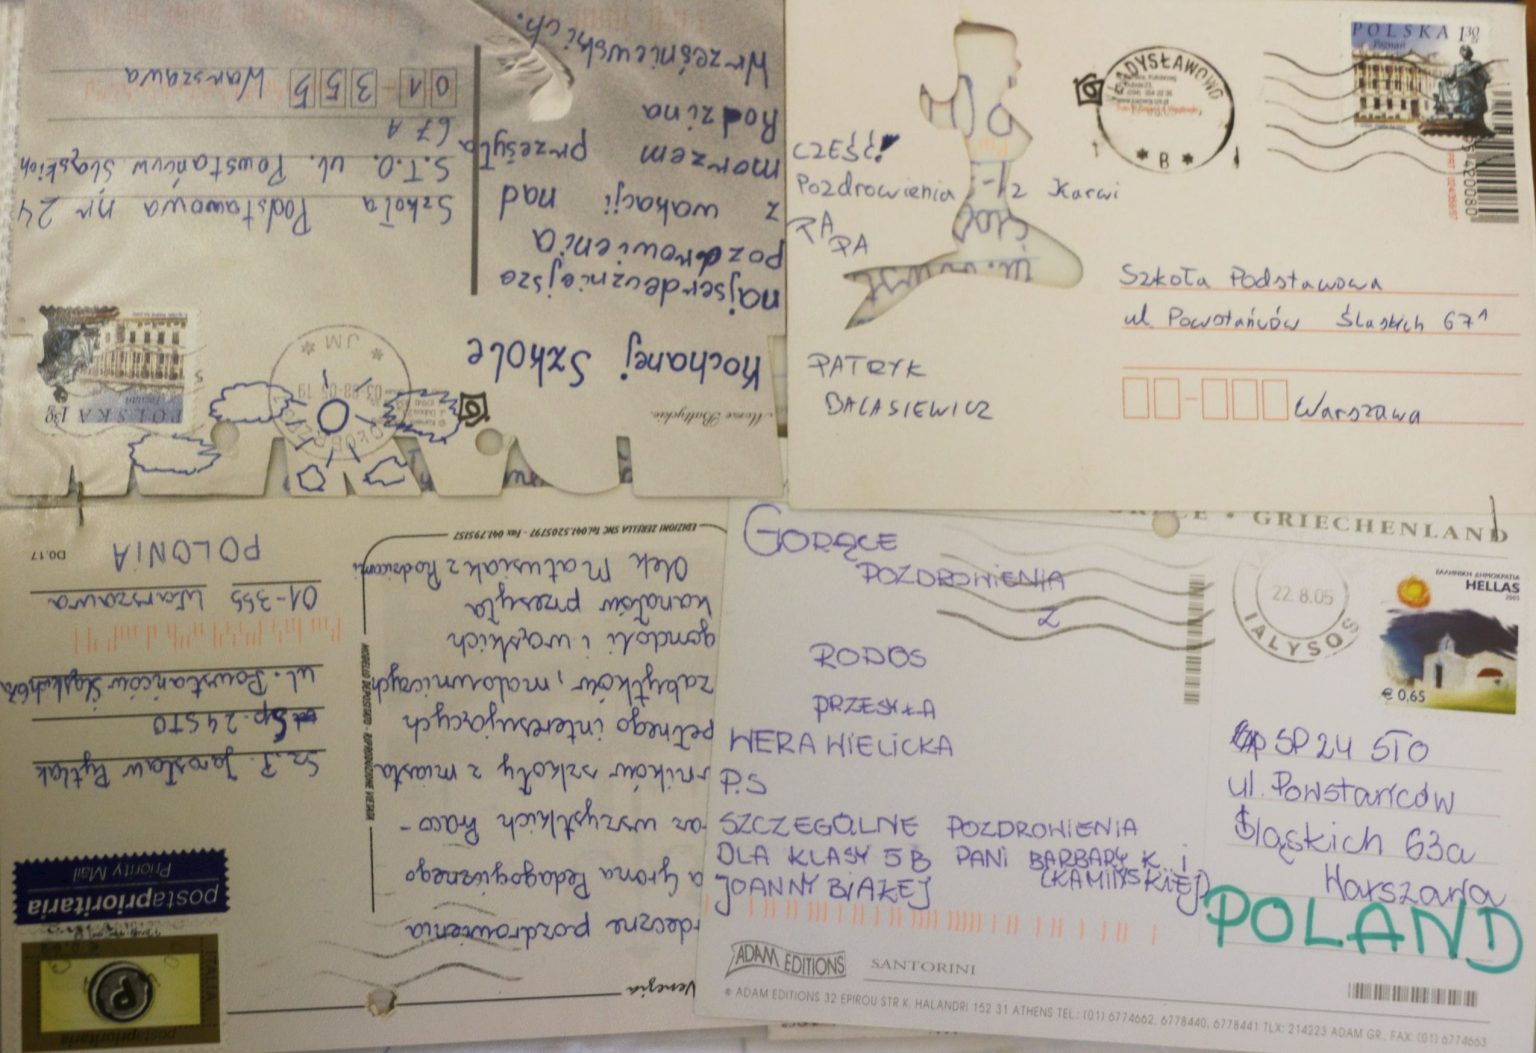 Kochanej Szkole
najserdeczniejsze
pozdrowienia
z wakacji nad
morzem przesyła
Rodzina
Wrześniewskich.
Morze Bałtyckie.
POLSKA 1,30
Poznań
JM
Szkoła Podstawowa nr 24
S.T.O. ul. Powstańców Śląskich
67A
01-355 Warszawa
CZEŚĆ!
Pozdrowienia z Karwi
PA
PA
PATRYK
BALASIEWICZ
WŁADYSŁAWOWO
* B *
POLSKA 1,30
Poznań
Szkoła Podstawowa
ul Powstańców Śląskich 67A
Warszawa
Venezia
deczne pozdrowienia
a Grona Pedagogicznego
az wszystkich Praco-
wników szkoły z miasta
pełnego interesujących
zabytków, malowniczych
gondoli i wąskich
kanałów przesyła
Olek Matusiak z Rodzicami
EDIZIONI ZERELLA SNC Tel. 041.5205797 - Fax 041.795157
MODELLO DEPOSITATO - RIPRODUZIONE VIETATA
postaprioritaria
ITALIA
P
postaprioritaria
Priority Mail
Sz. P. Jarosław Pytlak
Sp. 24 STO
ul. Powstańców Śląskich
01-355 Warszawa
POLONIA
D0.17
• GRIECHENLAND
GORĄCE
POZDROWIENIA
Z
RODOS
PRZESYŁA
WERA WIELICKA
P.S
SZCZEGÓLNE POZDROWIENIA
DLA KLASY 5B PANI BARBARY K. i
(KAMIŃSKIEJ)
JOANNY BIAŁEJ
22.8.05
IALYSOS
ΕΛΛΗΝΙΚΗ ΔΗΜΟΚΡΑΤΙΑ
HELLAS
2005
€0,65
SP 24 STO
ul. Powstańców
Śląskich 63a
Warszawa
POLAND
ADAM EDITIONS
SANTORINI
® ADAM EDITIONS 32 EPIROU STR K. HALANDRI 152 31 ATHENS TEL.: (01) 6774662, 6778440, 6778441 TLX: 214223 ADAM GR., FAX: (01) 6774663